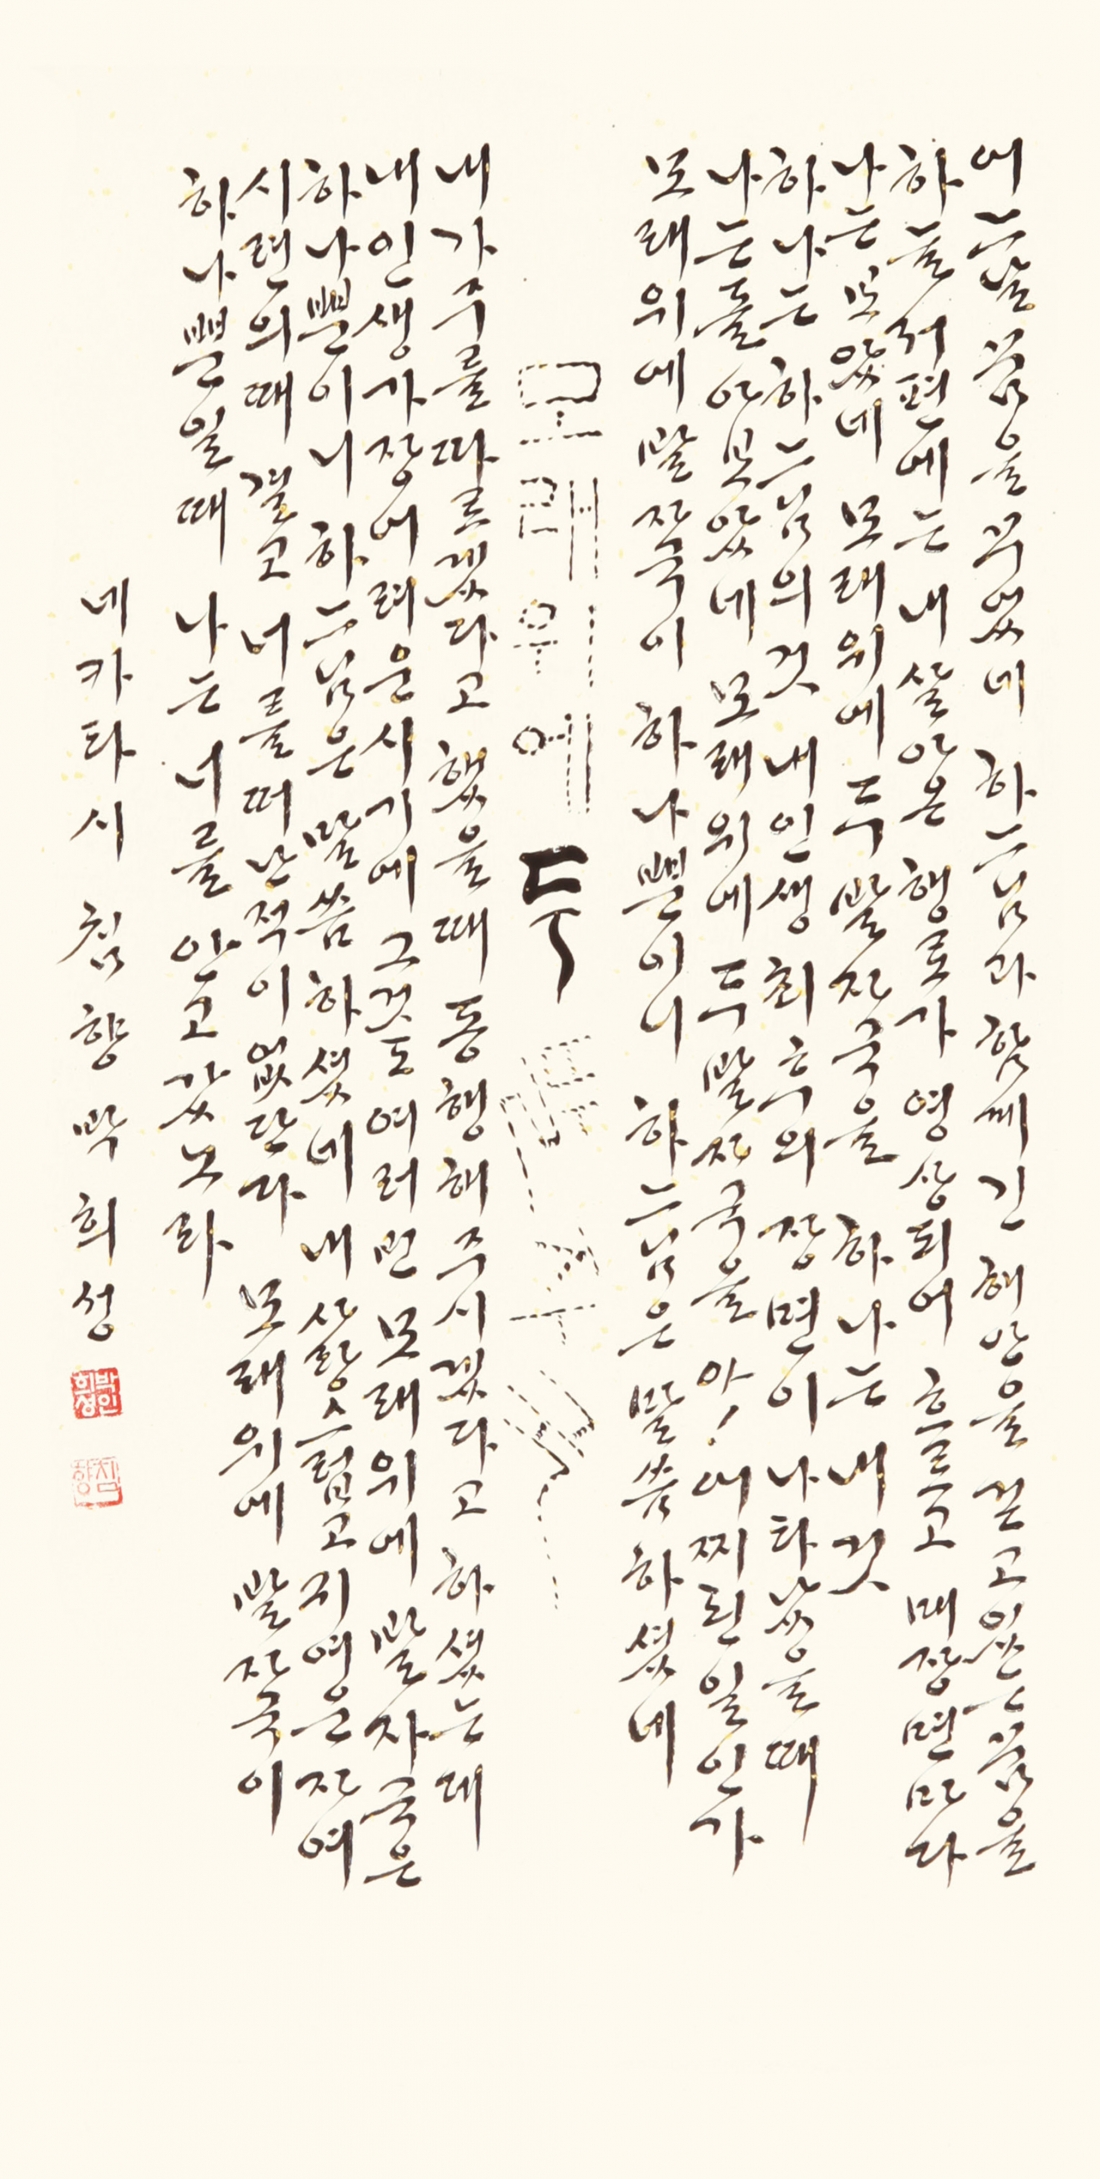 어느날 꿈을 꾸었네 하느님과 함께 긴 해안을 걷고 있는 꿈을
하늘 저편에는 내 살아온 행로가 영상되어 흐르고 매장면마다
나는 보았네 모래위에 두 발자국을 하나는 내것
하나는 하느님의것 내 인생 최후의 장면이 나타났을때
나는 돌아보았네 모래위에 두 발자국을 아! 어찌된 일인가
모래위에 발자국이 하나뿐이니 하느님은 말씀하셨네
모래 위에 두 발자국
내가 주를 따르겠다고 했을때 동행해 주시겠다고 하셨는데
내 인생 가장 어려운 시기에 그것도 여러번 모래위에 발자국은
하나뿐이니 하느님은 말씀하셨네 내 사랑스럽고 귀여운 자여
시련의 때 결코 너를 떠난적이 없단다 모래위에 발자국이
하나뿐일때 나는 너를 안고 갔노라
네카타시 침향 박희성
박희성인
침향